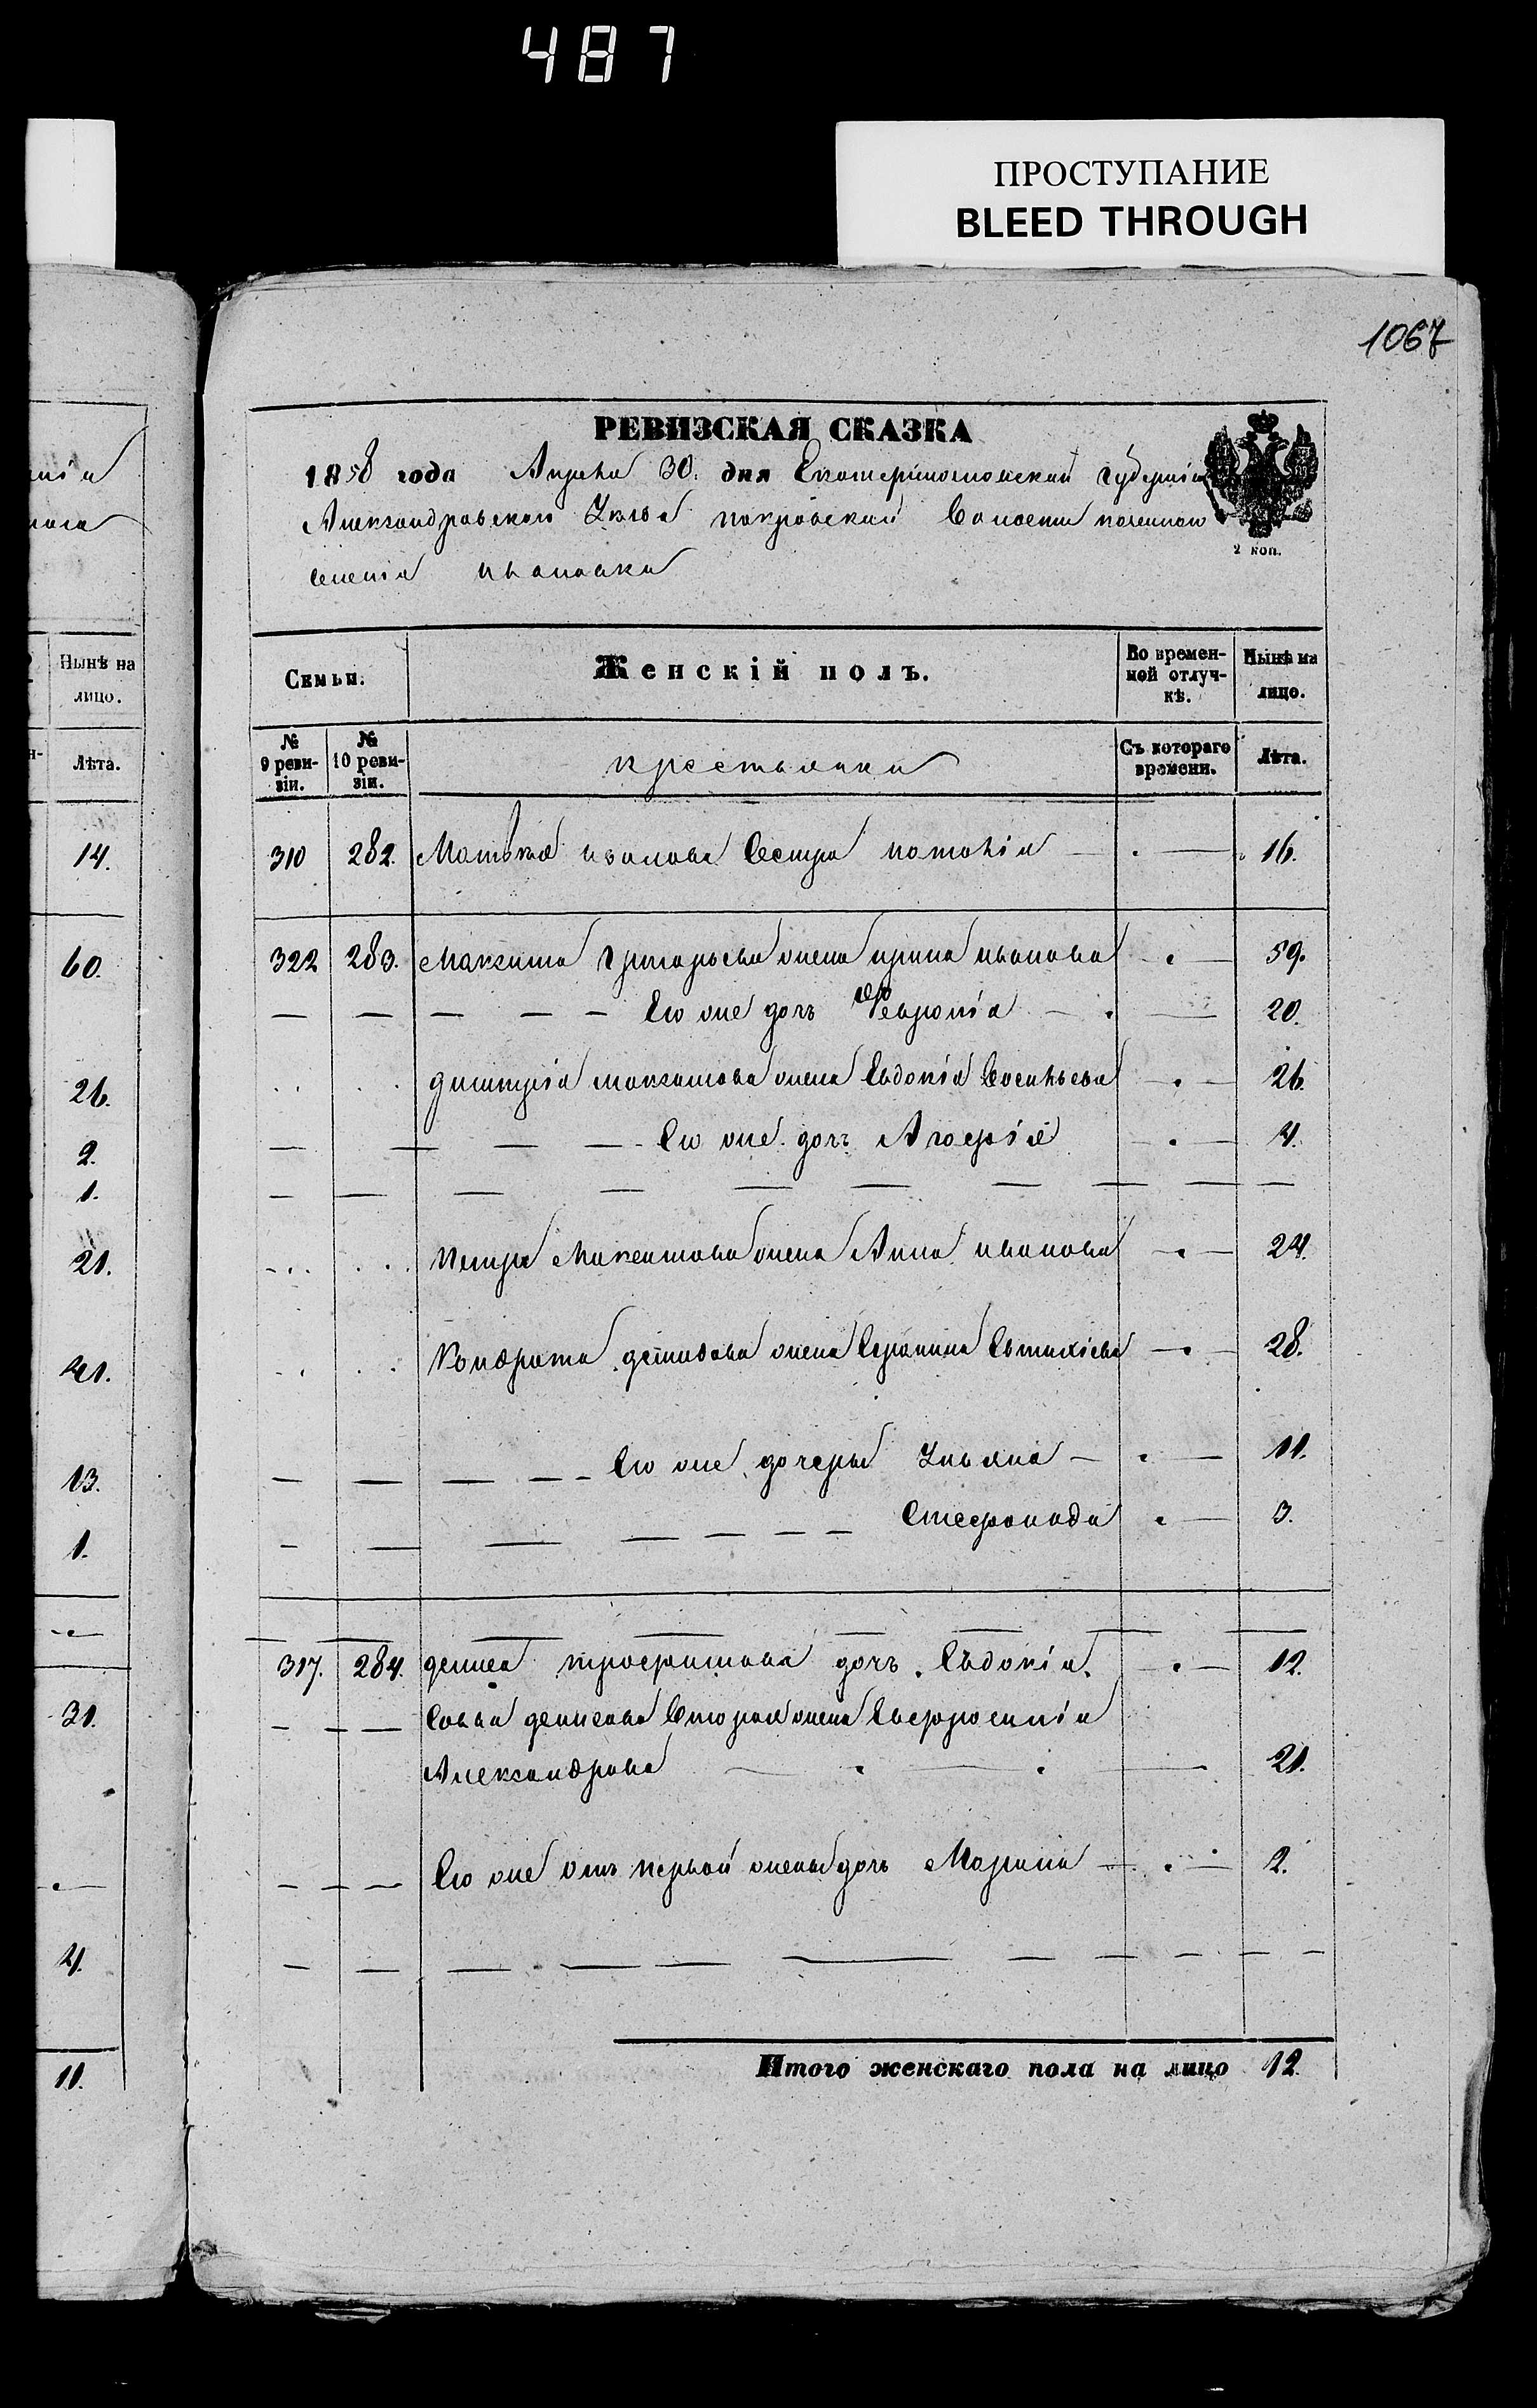 487
ПРОСТУПАНИЕ
BLEED THROUGH
1067
РЕВИЗСКАЯ СКАЗКА
1858 года Апреля 30. дня Екатеринославской Губерніи
Александровскаго Уезда покровской Волости казеннаго
селенія ивановки
2 коп.
Семьи. Женскій полъ. Во времен-ной отлуч-кѣ. Нынѣ на лицо.
№ 9 реви-зіи. № 10 реви-зіи. крестьянки Съ котораго времени. Лѣта.
310 282. Матвѣя иванова Сестра наталія 16.
322 283. Максима григорьева жена ирина иванова 59.
Его же дочь Февронія 20.
дмитрія максимова жена Евдокія Васильева 26.
Его же дочь 4.
петра Максимова жена Анна иванова 24.
Кондрата демидова жена 28.
Его же дочери Ульяна 11.
Стефанида 3.
317. 284. дениса трофимова дочь Евдокія. 12.
Савы денисова Вторая жена Евфросинія
Александрова 21.
Его же отъ первой жены дочь Марина 2.
Итого женскаго пола на лицо 12.
Нынѣ на лицо.
Лѣта.
14.
60.
26.
2.
1.
21.
41.
13.
1.
31.
4.
11.